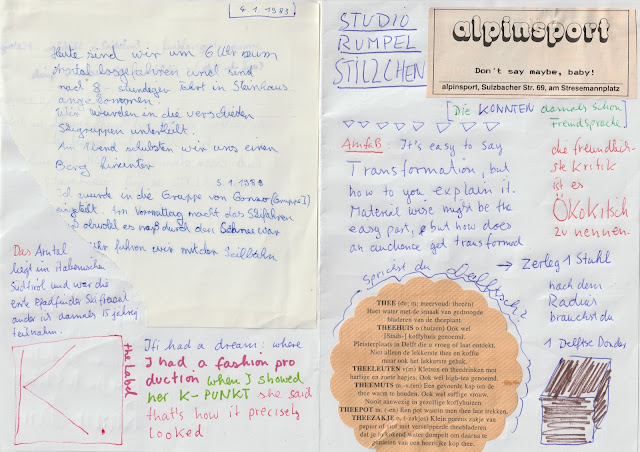 4.1.1983
Heute sind wir um 6 Uhr zum
Portal losgefahren und sind
nach 8 stündiger Fahrt in Steinhaus
angekommen.
Wir wurden in die verschieden
Skigruppen unterteilt.
Am Abend schubsten wir uns einen
Berg hinunter
5.1.1983
Ich wurde in die Gruppe von Gonzo (Gruppe I)
eingteilt. Am Vormittag macht das Skifahren
obwohl es naß durch den Schnee war
Uhr fuhren wir mit der Seilbahn
Das Arntal
liegt im Italienischen
Südtirol und war die
erste Pfadfinder Skifreizeit
an der ich damals 15 jährig
teilnahm.
K.
the label
If i had a dream: where
I had a fashion pro
duction when I showed
her K-PUNKT she said
that's how it precisely
looked
STUDIO
RUMPEL
STILZCHEN
alpinsport
Don't say maybe, baby!
alpinsport, Sulzbacher Str. 69, am Stresemannplatz
[Die KONNTEN damals schon
Fremdsprache]
Amfaß: It's easy to say
Transformation, but
how to you explain it.
Material wise might be the
easy part, but how does
an audience get transformed
die freundlich-
ste Kritik
ist es
ÖKOKitsch
zu nennen.
sprichst du delftsch?
→ Zerleg 1 Stuhl
nach dem
Radius
brauchst du
1 Delftse Donder
THEE (de; m; meervoud: theeën)
Huot water met de smaak van gedroogde
bladeren van de theeplant.
THEEHUIS o (huizen) Ook wel
koffyhuis genoemd.
Pleisterplaats in Delft die u vroeg of laat ontdekt.
Niet alleen de lekkerste thee en koffie
maar ook het lekkerste gebak.
THEELEUTEN (ww) Kletsen en theedrinken met
hartige en zoete hapjes. Ook wel high-tea genoemd.
THEEMUTS m. (-en) Een gevoerde kap om de
thee warm te houden. Ook wel suffige vrouw.
Nooit aanwezig in gezellige koffyhuizen
THEEPOT m. (-en) Een pot waarin men thee laat trekken.
THEEZAKJE o. (-zakjes) Klein poreus zakje van
papier of stof met versnipperde theebladeren
dat je in kokend water dompelt om daarna te
genieten van een heerlijke kop thee.